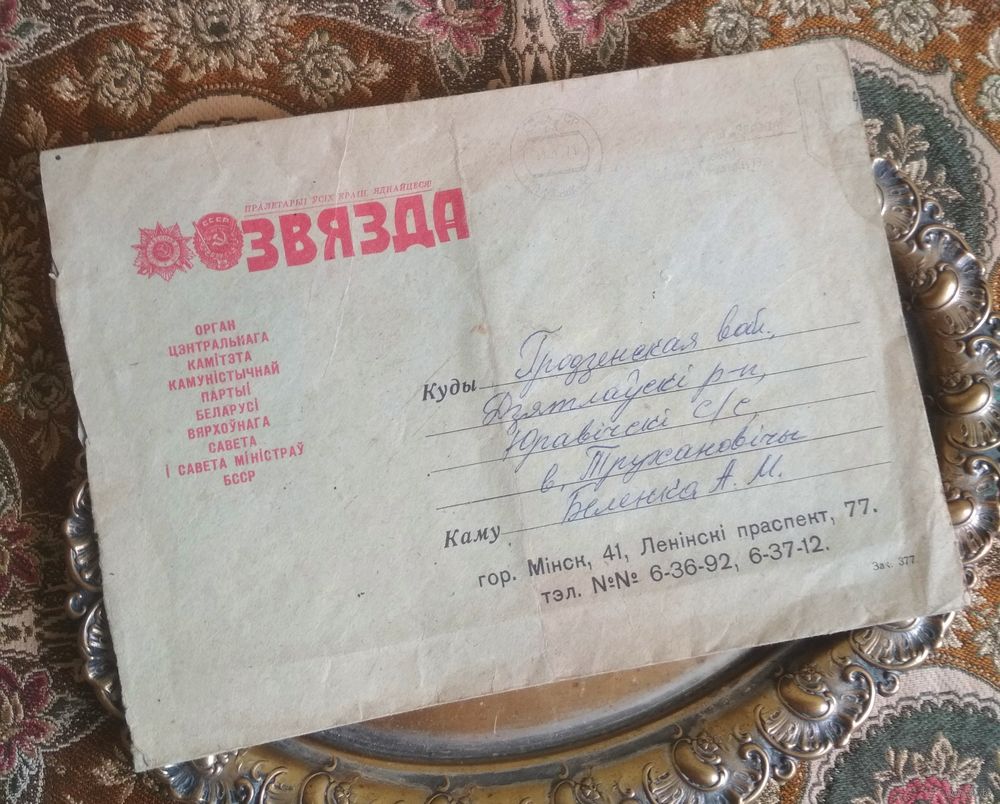 ПРАЛЕТАРЫІ ЎСІХ КРАІН, ЯДНАЙЦЕСЯ!
СССР
ЗВЯЗДА
ОРГАН
ЦЭНТРАЛЬНАГА
КАМІТЭТА
КАМУНІСТЫЧНАЙ
ПАРТЫІ
БЕЛАРУСІ
ВЯРХОЎНАГА
САВЕТА
І САВЕТА МІНІСТРАЎ
БССР
Куды Гродзенская вобл.,
Дзятлаўскі р-н,
Юравічскі с/с,
в. Трухановічы
Каму Беленка А. М.
гор. Мінск, 41, Ленінскі праспект, 77.
тэл. №№ 6-36-92, 6-37-12.
Зак. 377